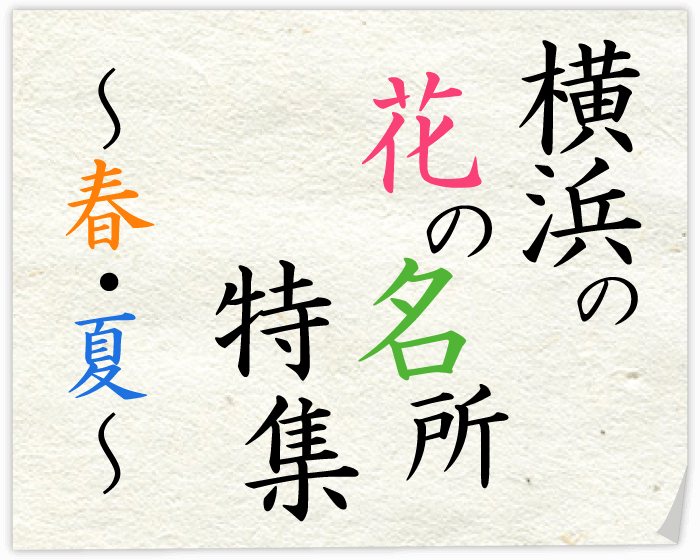 横浜の
花の名所
特集
～春・夏～